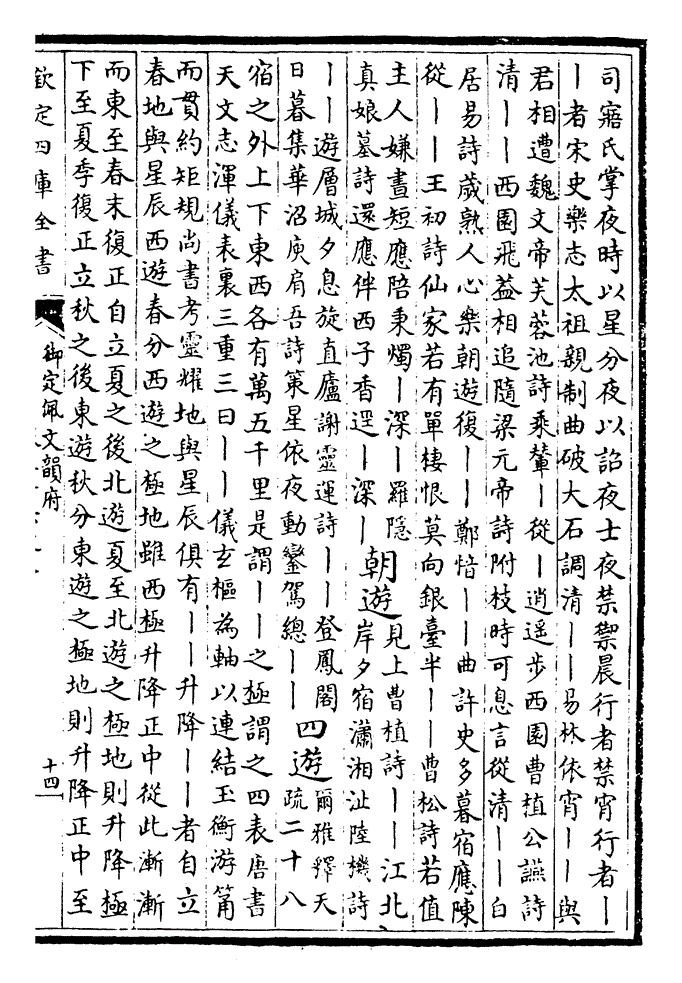 司寤氏掌夜時以星分夜以詔夜士夜禁禦晨行者禁宵行者丨
丨者宋史樂志太祖親制曲破大石調清丨丨易林依宵丨丨與
君相遭魏文帝芙蓉池詩乘輦丨從丨逍遥步西園曹植公讌詩
清丨丨西園飛葢相追隨梁元帝詩附枝時可息言從清丨丨白
居易詩歲熟人心樂朝遊復丨丨鄭愔丨丨曲許史多暮宿應陳
從丨丨王初詩仙家若有單棲恨莫向銀臺半丨丨曹松詩若值
主人嫌晝短應陪秉燭丨深丨羅隱
真娘墓詩還應伴西子香逕丨深丨
朝遊
見上曹植詩丨丨江北
岸夕宿瀟湘沚陸機詩
丨丨遊層城夕息旋直廬謝靈運詩丨丨登鳳閣
日暮集華沼庾肩吾詩策星依夜動鑾駕總丨丨
四遊
爾雅釋天
疏二十八
宿之外上下東西各有萬五千里是謂丨丨之極謂之四表唐書
天文志渾儀表裏三重三曰丨丨儀玄樞為軸以連結玉衡游筩
而貫約矩規尚書考靈耀地與星辰俱有丨丨升降丨丨者自立
春地與星辰西遊春分西遊之極地雖西極升降正中從此漸漸
而東至春末復正自立夏之後北遊夏至北遊之極地則升降極
下至夏季復正立秋之後東遊秋分東遊之極地則升降正中至
欽定四庫全書
御定佩文韻府
十四